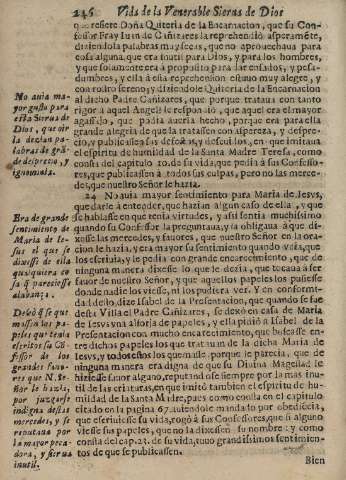 246 Vida de la Venerable Sierua de Dios
que refiere Doña Quiteria de la Encarnacion, que su Con-
fessor Fray Iuan de Cañizares la reprehendiò asperamẽte,
diziendola palabras muy secas, que no aprouechaua para
cosa alguna, que era inutil para Dios, y para los hombres,
y que solamente era a proposito para dar enfados, y pesa-
dumbres, y ella a esto respondiò siempre muy alegre, y
con rostro sereno, y diziendole Quiteria de la Encarnacion
al dicho Padre Cañizares, que porque trataua con tanto
rigor à aquel Angel? le respondiò, que aquel era el mayor
agassajo, que podria hazerla, porque era para ella
grande alegria de que la tratassen con aspereza, y despre-
cio, y publicassen sus defetos, y descuidos, en que imitaua
el espiritu de humildad de la Santa Madre Teresa, como
consta del capitulo 10. de su vida, que pedia à sus Confesso-
res, que publicassen à todos sus culpas, pero no las merce-
des, que nuestro Señor le hazia.
24 No auia mayor sentimiento para Maria de Iesvs,
que darle à entender, que hazian algun caso de ella, y que
se hablasse en que tenia virtudes, y assi sentia muchissimo
quando su Confessor la preguntaua, y la obligaua à que di-
xesse las mercedes, y fauores, que nuestro Señor en la ora-
cion le hazia, y era mayor su sentimiento quando veia, que
los escriuia, y le pedia con grande encarecimiento, que de
ninguna manera dixesse lo que le dezia, que tocaua à ser
fauor de nuestro Señor, y que aquellos papeles los pusiesse
donde nadie los viesse, ni los pudiera ver. Y en conformi-
dad dello, dize Isabel de la Presentacion, que quando se fue
desta Villa el Padre Cañizares, se dexò en casa de Maria
de Iesvs vna alforja de papeles, y ella pidiò à Isabel de la
Presentacion con mucho encarecimiento, que buscasse en-
tre dichos papeles los que tratauan de la dicha Maria de
Iesvs, y todos estos los quemasse, porque le parecia, que de
ninguna manera era digna de que su Diuina Magestad le
hiziesse fauor alguno, reputandose siempre por la mas inu-
til de las criaturas, en que imitò tambien el espiritu de hu-
mildad de la Santa Madre, pues como consta en el capitulo
citado en la pagina 67. auiendole mandado por obediẽcia,
que escriuiesse su vida, rogò à sus Confessores, que si alguno
viesse sus papeles, que no la dixessen su nombre: y como
consta del cap. 23. de su vida, tuuo grandissimos sentimien-
tos de que se publicassen.
Bien
No auia ma-
yor gusto para
esta Sierua de
Dios, que oir
la dezian pa-
labras de grã-
de desprecio, y
ignominia.
Era de grande
sentimiento de
Maria de Ie-
sus el que se
dixesse de ella
qualquiera co
sa q̃ pareciesse
alabança.
Deseò q̃ se que
massen los pa-
peles que tenia
escritos su Cõ-
fessor de los
grandes fauo-
res que N. Se-
ñor le hazia,
por juzgarse
indigna destas
mercedes, y se
reputaua por
la mayor peca-
dora, y sierua
inutil.